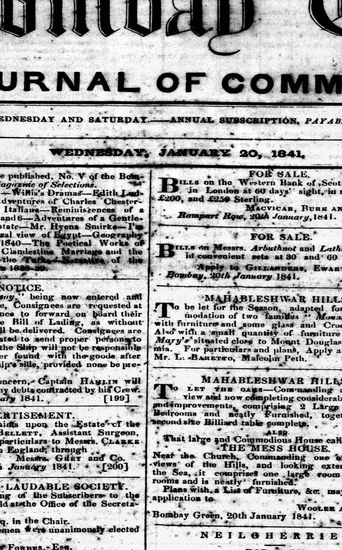 ombay
URNAL OF COMM
EDNESDAY AND SATURDAY.—ANNUAL SUBSCRIPTION, PAYAB
WEDNESDAY, JANUARY 20, 1841.
e published, No. V of the Bom-
agazine of Selections.
—Willis's Dramas—Edith
dventures of Charles Chester-
Italians—Reminiscences of a
and 6—Adventures of a Gentle-
state—Mr. Hyena Smirke's
ral view of Egypt—Geography
1840—The Poetical Works of
Clandestine Marriage and the
NOTICE.
being now entered and
Consignees are requested at
nce to forward on board their
e Bill of Lading, as without
ll be delivered. Consignees are
ested to send proper persons to
he Ship will not be responsible
er found with the goods after
hip's side, provided none be pre-
oncern, Captain HAMLIN will
ny debts contracted by his Crew.
ary 1841. [199]
ERTISEMENT.
aims upon the Estate of the
BELLETT, Assistant Surgeon,
particulars to Messrs. CLARKE
n England, through
Messrs. GREY and Co.
January 1841. [200]
LAUDABLE SOCIETY.
ng of the Subscribers to the
ld at the Office of the Secreta-
q. in the Chair.
emen were unanimously elected
FORBES, ESQ.
FOR SALE.
BILLS on the Western Bank of Scot
in London at 60 days' sight, in
£200, and £250 Sterling.
MACVICAR, BURN
Rampart Row, 20th January, 1841.
FOR SALE.
BILLS on Messrs. Arbuthnot and Lath
in convenient sets at 30 and 60
Apply to GILLANDERS, EWAR
Bombay, 20th January 1841.
MAHABLESHWAR HILL
To be let for the Season, adapted for
modation of two families
with furniture and some glass and Croc
Also with a small quantity of furniture
Mary's situated close to Mount Douglas
mia. For particulars and plans, Apply
Mr. L. BARETTO, Malcolm Peth.
MAHABLESHWAR HILL
TO LET THE OAKS—Commanding
view and now completing considerabl
andimprovements, comprising 2 Large
Bedrooms and neatly Furnished, toget
second size Billiard table complete.
ALSO
That large and Commodious House call
THE MESS HOUSE.
Near the Church, Commanding one
views of the Hills, and looking exten
the Sea, it comprises one large room
rooms and is neatly furnished.
Plans with a List of Furniture, &c. may
application to
WOOLER
Bombay Green, 20th January 1841.
NEILGHERRIE